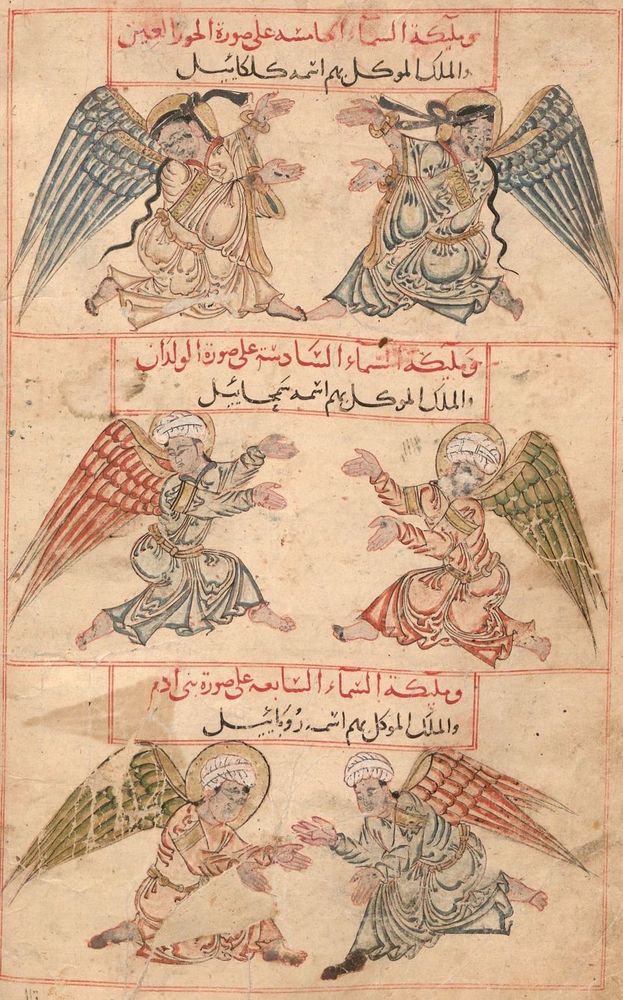 ومليكة السمآء الخامسه على صورة الحور العين
والملك الموكل بهم اسمه كلكاييل
ومليكة السمآء السادسة على صورة الولدان
والملك الموكل بهم اسمه سمحاييل
ومليكة السمآء السابعه على صورة بنى ادم
والملك الموكل بهم اسمه روباييل